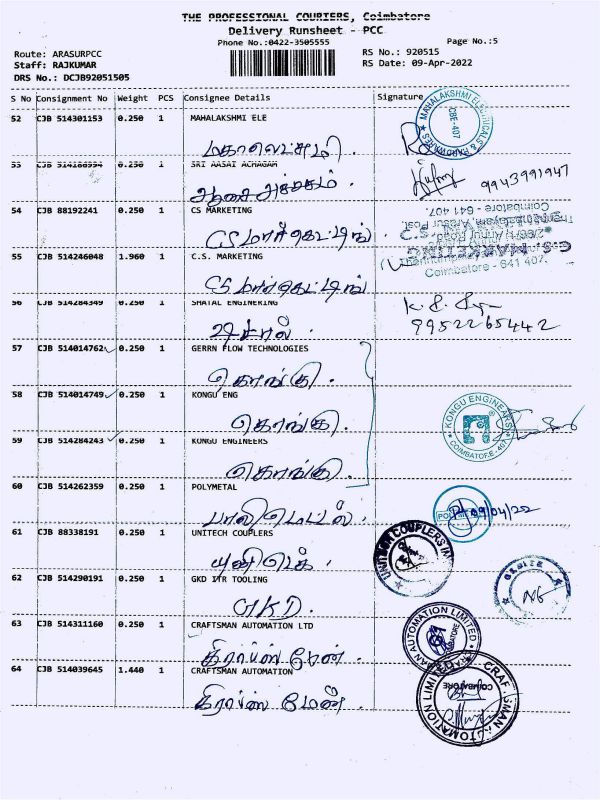 THE PROFESSIONAL COURIERS, Coimbatore
Delivery Runsheet - PCC
Phone No.:0422-3505555
Page No.:5
Route: ARASURPCC
Staff: RAJKUMAR
DRS No.: DCJB92051505
RS No.: 920515
RS Date: 09-Apr-2022
S No Consignment No Weight PCS Consignee Details Signature
52 CJB 514301153 0.250 1 MAHALAKSHMI ELE
மகாலெட்சுமி.
53 CJB 514186994 0.250 1 SRI AASAI ACHAGAM
ஆசை அச்சகம்.
9943991947
54 CJB 88192241 0.250 1 CS MARKETING
CS மார்கெட்டிங்.
55 CJB 514246048 1.960 1 C.S. MARKETING
CS மார்கெட்டிங்
C.S. MARKETING
Coimbatore - 641 407.
56 CJB 514284349 0.250 1 SHATAL ENGINERING
9952265442
57 CJB 514014762 0.250 1 GERRN FLOW TECHNOLOGIES
கொங்கு.
58 CJB 514014749 0.250 1 KONGU ENG
கொங்கு.
KONGU ENGINEARS
COIMBATORE - 407
59 CJB 514284243 0.250 1 KONGU ENGINEERS
கொங்கு.
60 CJB 514262359 0.250 1 POLYMETAL
பாலிமெட்டல்.
09/04/22
61 CJB 88338191 0.250 1 UNITECH COUPLERS
யுனிடெக்.
UNITECH COUPLERS IN
62 CJB 514290191 0.250 1 GKD ITR TOOLING
GKD.
63 CJB 514311160 0.250 1 CRAFTSMAN AUTOMATION LTD
கிராப்ஸ் மேன்.
64 CJB 514039645 1.440 1 CRAFTSMAN AUTOMATION
கிராப்ஸ் மேன்.
CRAFTSMAN AUTOMATION LIMITED
COIMBATORE